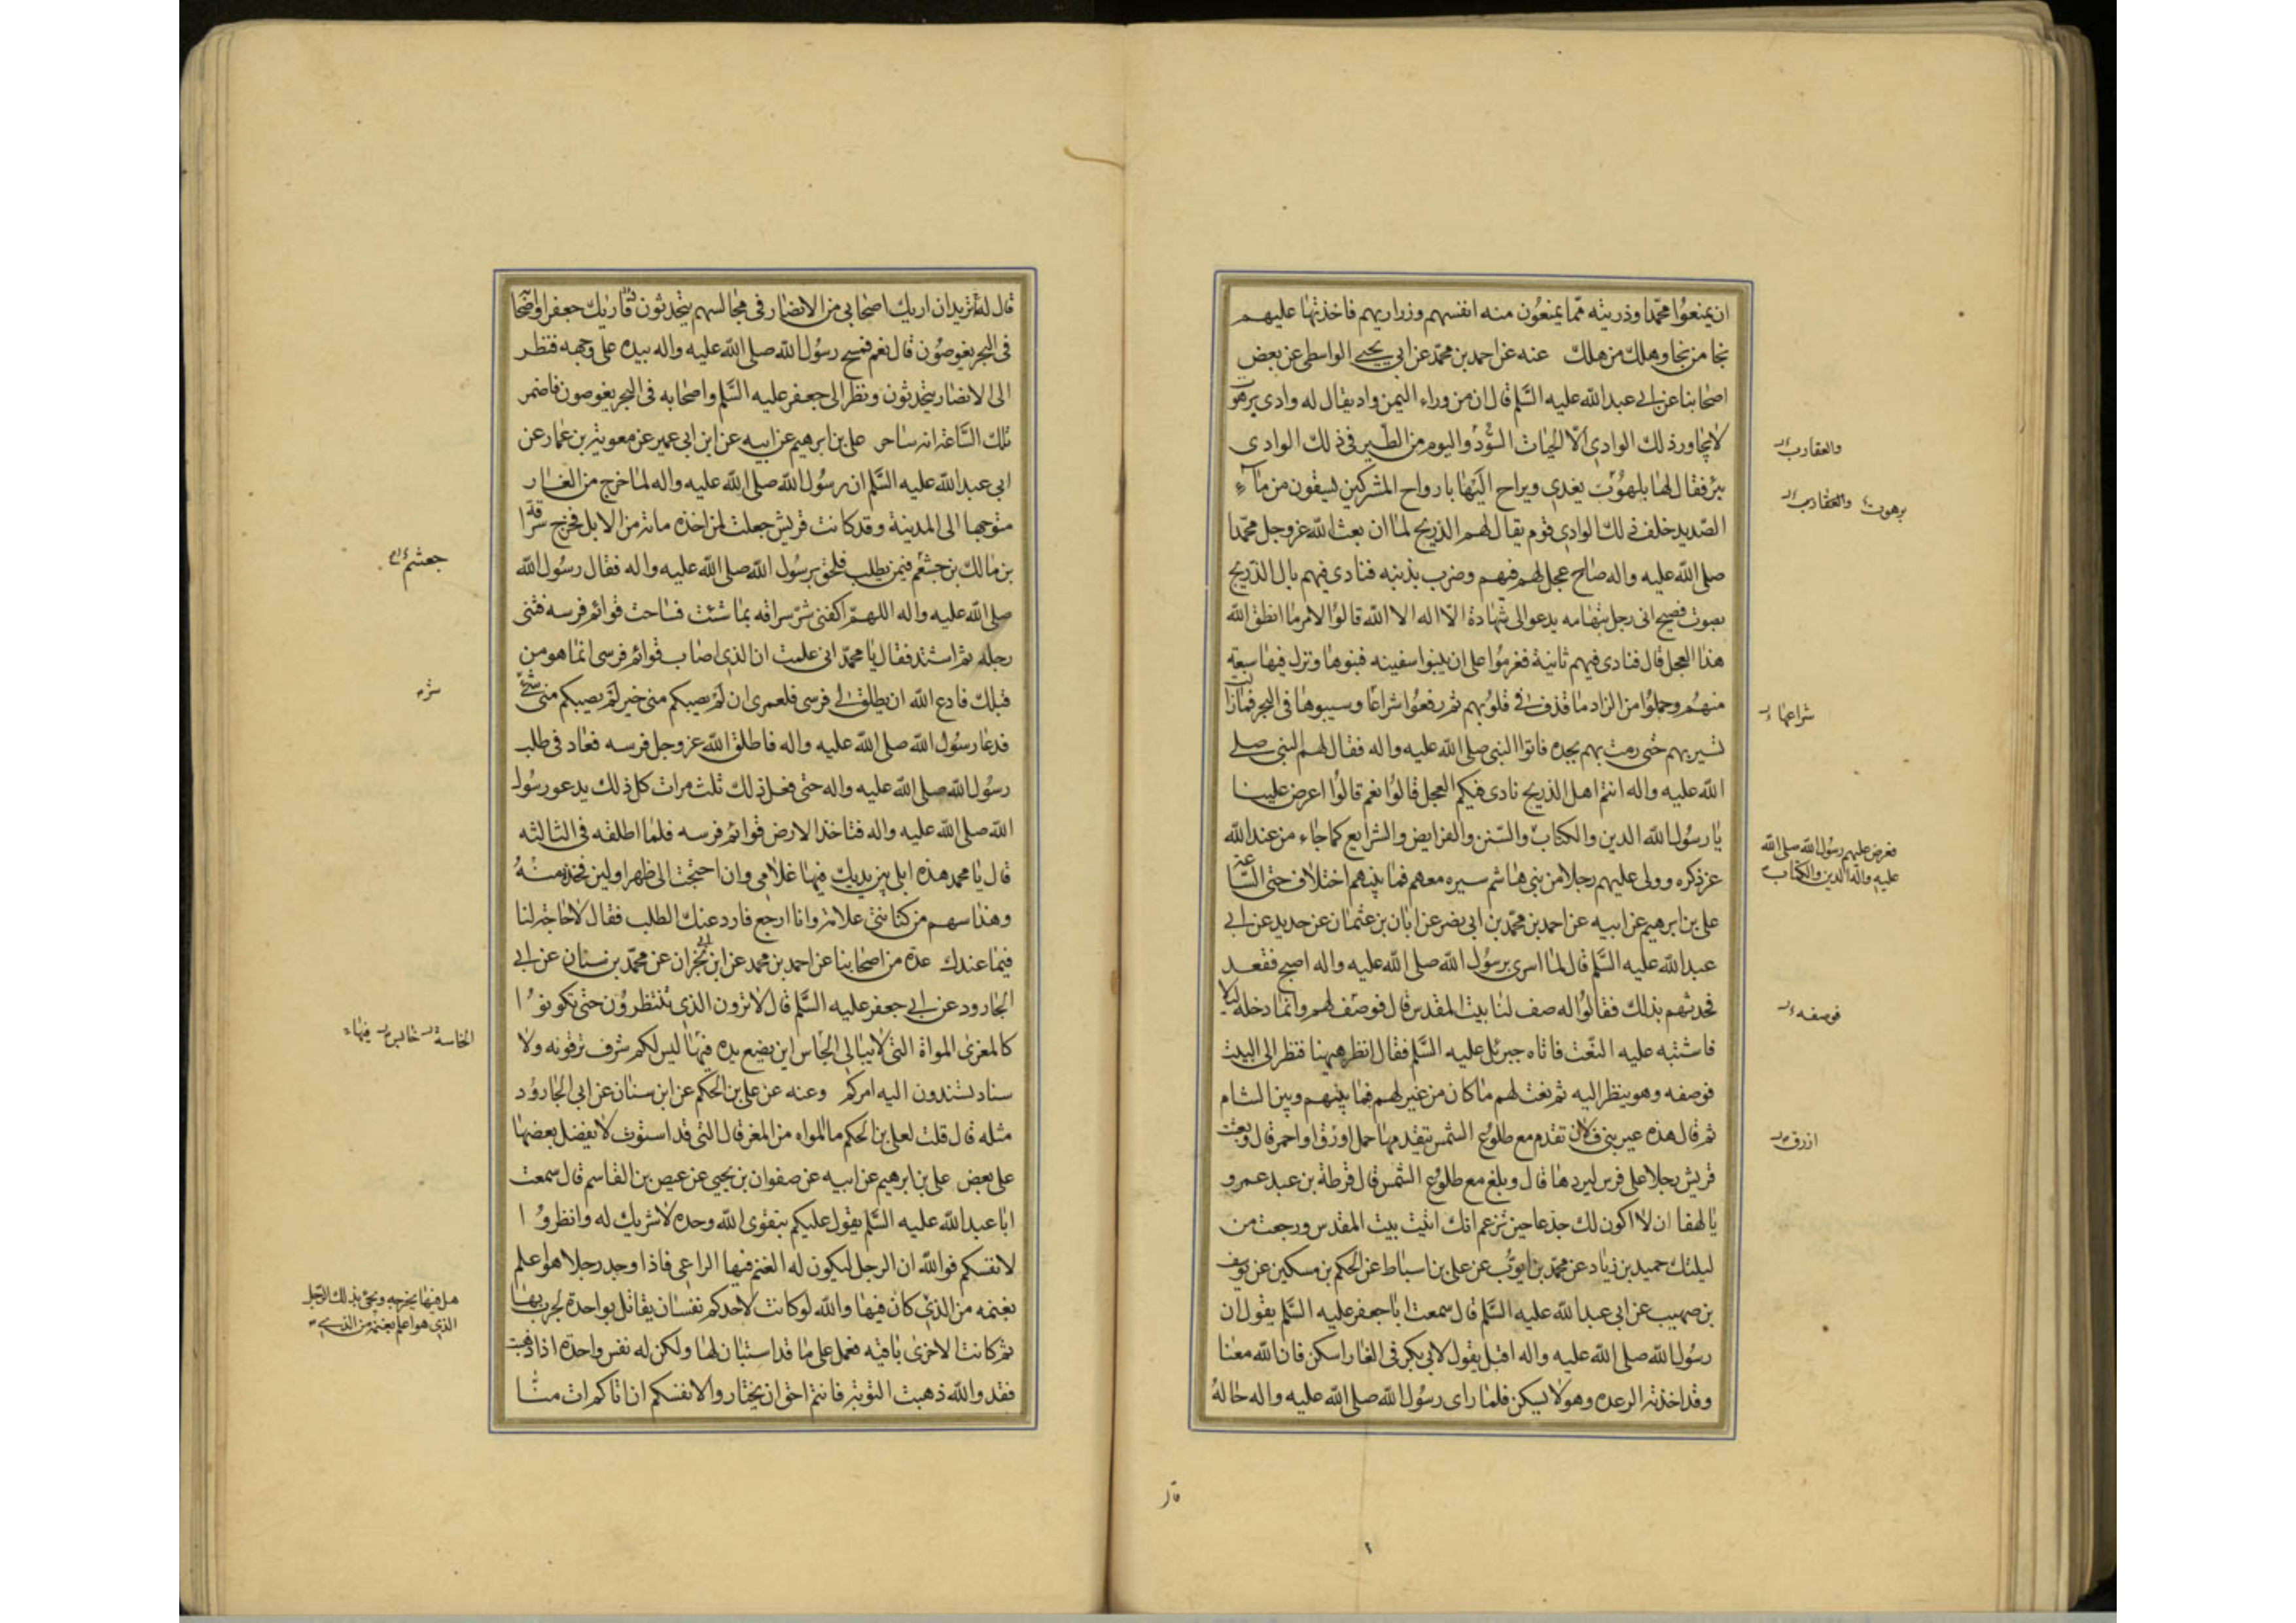 ان يمنعوا محمّدا وذريته ممّا يمنعون منه انفسهم وزراريهم فاخذتها عليهم
نجا من نجا وهلك من هلك عنه عن احمد بن محمّد عن ابي يحيى الواسطي عن بعض
اصحابنا عن ابي عبد الله عليه السّلم قال ان من وراء اليمن واد يقال له وادي برهوت
لا يجاور ذلك الوادي الّا الحيات السّود واليوم من الطّير في ذلك الوادي
بئر فقال لها بلهوت يغدى ويراح اليها بارواح المشركين يسقون من ماء
الصّديد خلف ذلك الوادي قوم يقال لهم الذريح لما ان بعث الله عز وجل محمّدا
صلى الله عليه واله صاح عجل لهم فيهم وضرب بذنبه فنادى فيهم يال الذّريح
بصوت فصيح اتى رجل بتهامه يدعو الى شهادة الّا اله الا الله قالوا لامر ما انطق الله
هذا العجل قال فنادى فيهم ثانية فعزموا على ان يبنوا سفينه فبنوها ونزل فيها سبعة
منهم وحملوا من الزاد ما قذف في قلوبهم ثم رفعوا شراعا وسيبوها في البحر فما زالت
تسير بهم حتى رمت بهم بجده فاتوا النبي صلى الله عليه واله فقال لهم النبي صلى
الله عليه واله انتم اهل الذريح نادى فيكم العجل قالوا نعم قالوا اعرض علينا
يا رسول الله الدين والكتاب والسّنن والفرايض والشرايع كما جاء من عند الله
عز ذكره وولى عليهم رجلا من بني هاشم سيره معهم فما بينهم اختلاف حتى السّاعة
علي بن ابرهيم عن ابيه عن احمد بن محمّد بن ابي نصر عن ابان بن عثمان عن حديد عن ابي
عبد الله عليه السّلم قال لما اسرى برسول الله صلى الله عليه واله اصبح فقعد
فحدثهم بذلك فقالوا له صف لنا بيت المقدس قال فوصف لهم وانما دخله ليلا
فاشتبه عليه النّعت فاتاه جبرئيل عليه السّلم فقال انظر هيهنا فنظر الى البيت
فوصفه وهو ينظر اليه ثم نعت لهم ما كان من عير لهم فيما بينهم وبين الشام
ثم قال هذه عير بني فلان تقدم مع طلوع الشمس يتقدمها جمل اورق او احمر قال وبعث
قريش رجلا على فرس ليردها قال وبلغ مع طلوع الشمس قال قرطة بن عبد عمرو
يا لهفا ان لا اكون لك جذعا حين تزعم انك اتيت بيت المقدس ورجعت من
ليلتك حميد بن زياد عن محمّد بن ايوب عن علي بن اسباط عن الحكم بن مسكين عن يوسف
بن صهيب عن ابي عبد الله عليه السّلم قال سمعت ابا جعفر عليه السّلم يقول ان
رسول الله صلى الله عليه واله اقبل يقول لابي بكر في الغار اسكن فان الله معنا
وقد اخذته الرعده وهو لا يسكن فلما راى رسول الله صلى الله عليه واله حاله
والعقارب
برهوت والعقارب
شراعها
فعرض عليهم رسول الله صلى الله
عليه واله الدين والكتاب
فوصفه
ازرق
قال
قال له تريد ان اريك اصحابي من الانصار في مجالسهم يتحدثون فاريك جعفرا واصحابه
في البحر يغوصون قال نعم فمسح رسول الله صلى الله عليه واله بيده على وجهه فنظر
الى الانصار يتحدثون ونظر الى جعفر عليه السّلم واصحابه في البحر يغوصون فاضمر
تلك السّاعة انه ساحر علي بن ابرهيم عن ابيه عن ابن ابي عمير عن معوية بن عمار عن
ابي عبد الله عليه السّلم ان رسول الله صلى الله عليه واله لما خرج من الغار
متوجها الى المدينة وقد كانت قريش جعلت لمن اخذه مائة من الابل فخرج سراقة
بن مالك بن جشعم فيمن يطلب فلحق برسول الله صلى الله عليه واله فقال رسول الله
صلى الله عليه واله اللهمّ اكفني شرّ سراقه بما شئت فساحت قوائم فرسه فثنى
رجله ثم اشتد فقال يا محمّد اني علمت ان الذي اصاب قوائم فرسي انما هو من
قبلك فادع الله ان يطلق لي فرسي فلعمري ان لم يصبكم مني خير لم يصبكم مني شيء
فدعا رسول الله صلى الله عليه واله فاطلق الله عز وجل فرسه فعاد في طلب
رسول الله صلى الله عليه واله حتى فعل ذلك ثلث مرات كل ذلك يدعو رسول
الله صلى الله عليه واله فتاخذ الارض قوائم فرسه فلما اطلقه في الثالثه
قال يا محمد هذه ابلي بين يديك فيها غلامي وان احتجت الى ظهر او لبن فخذ منه
وهذا سهم من كنانتي علامة وانا ارجع فارد عنك الطلب فقال لا حاجة لنا
فيما عندك عدة من اصحابنا عن احمد بن محمد عن ابن ابي نجران عن محمّد بن سنان عن ابي
الجارود عن ابي جعفر عليه السّلم قال لا ترون الذي تنتظرون حتى تكونوا
كالمعزى المواة التي لا يبالي الخاس اين يضع يده فيها ليس لكم شرف ترقونه ولا
سناد تسندون اليه امركم وعنه عن علي بن الحكم عن ابن سنان عن ابي الجارود
مثله قال قلت لعلي بن الحكم ما المواه من المعز قال التي قد استوت لا يفضل بعضها
على بعض علي بن ابرهيم عن ابيه عن صفوان بن يحيى عن عيص بن القاسم قال سمعت
ابا عبد الله عليه السّلم يقول عليكم بتقوى الله وحده لا شريك له وانظروا
لانفسكم فوالله ان الرجل ليكون له الغنم فيها الراعي فاذا وجد رجلا هو اعلم
بغنمه من الذي كان فيها والله لو كانت لاحدكم نفسان يقاتل بواحدة يجرب بها
ثم كانت الاخرى باقيه فعمل على ما قد استبان لها ولكن له نفس واحدة اذا ذهبت
فقد والله ذهبت التوبة فانتم احق ان يختاروا لانفسكم ان اتاكم ات منّا
جعثم
شر
الخاسة خابس فيها
هل فيها يخرجه ويجئ بذلك الرّجل
الذي هو اعلم بغنمه من الذي